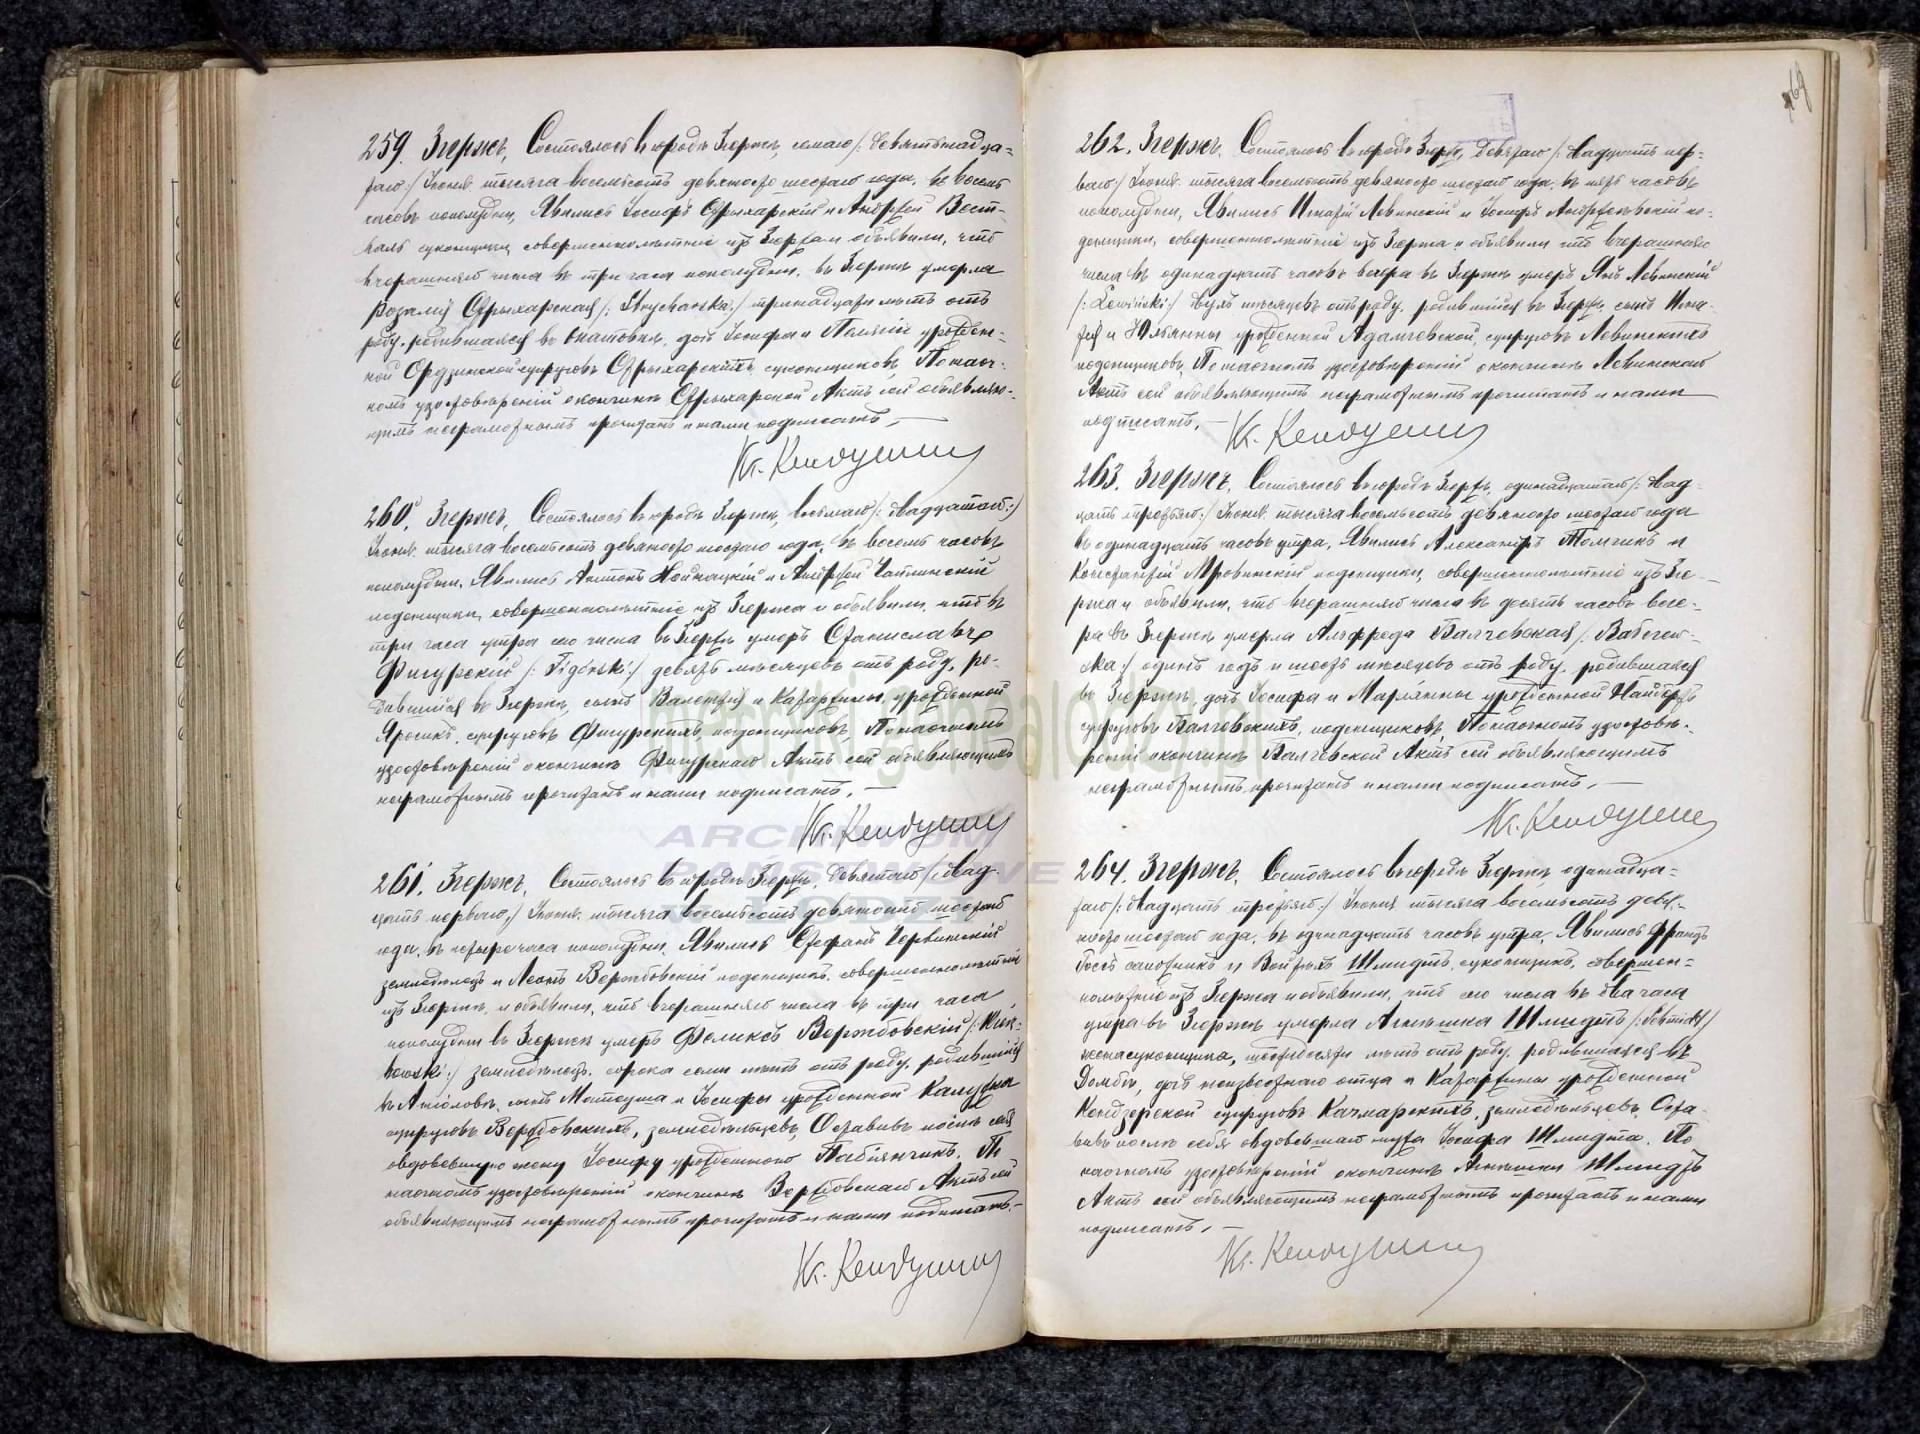 259. Згержъ, Состоялось въ городѣ Згержѣ, седьмаго /: девятнадца-
таго:/ Іюня тысяча восемьсотъ девяносто шестаго года, въ восемь
часовъ пополудни, Явились Іосифъ Стрыхарскій и Андрей Вест-
фаль суконщики, совершеннолѣтніе изъ Згержа и объявили, что
вчерашняго числа въ три часа пополудни, въ Згержѣ умерла
Розалія Стрыхарская /: Strycharska :/ тринадцати лѣтъ отъ
роду, родившаяся въ дочь Іосифа и Пелягіи урожден-
ной супруговъ Стрыхарскихъ, суконщиковъ, По наоч-
номъ удостовѣреніи о кончинѣ Стрыхарской Актъ сей объявляю-
щимъ неграмотнымъ прочитанъ и нами подписанъ. —
260. Згержъ, Состоялось въ городѣ Згержѣ, восьмаго /: двадцатаго :/
Іюня тысяча восемьсотъ девяносто шестаго года, въ восемь часовъ
пополудни, Явились Антонъ и Андрей
поденщики, совершеннолѣтніе изъ Згержа и объявили, что въ
три часа утра сего числа въ Згержѣ умеръ Станиславъ
Фигурскій /: Figórski :/ девять мѣсяцевъ отъ роду, ро-
дившійся въ Згержѣ, сынъ Валентія и Катаржины, урожденной
супруговъ Фигурскихъ, поденщиковъ, По наочномъ
удостовѣреніи о кончинѣ Фигурскаго Актъ сей объявляющимъ
неграмотнымъ прочитанъ и нами подписанъ. —
261. Згержъ, Состоялось въ городѣ Згержѣ, девятаго /: двад-
цать перваго :/ Іюня тысяча восемьсотъ девяносто шестаго
года, въ четыре часа пополудни, Явились Стефанъ Червинскій
земледѣлецъ и Леонъ Вержбовскій поденщикъ, совершеннолѣтніе
изъ Згержа, и объявили, что вчерашняго числа въ три часа
пополудни въ Згержѣ умеръ Феликсъ Вержбовскій /: Wierz-
bowski :/ земледѣлецъ, сорока семи лѣтъ отъ роду, родившійся
въ сынъ Матеуша и Іосифы урожденной
супруговъ Вержбовскихъ, земледѣльцевъ, Оставивъ послѣ себя
овдовѣвшую жену Іосифу урожденную По
наочномъ удостовѣреніи о кончинѣ Вержбовскаго Актъ сей
объявляющимъ неграмотнымъ прочитанъ и нами подписанъ. —
262. Згержъ, Состоялось въ городѣ Згержѣ, девятаго /: двадцать пер-
ваго :/ Іюня тысяча восемьсотъ девяносто шестаго года, въ пять часовъ
пополудни, Явились Игнатій Левинскій и Іосифъ по-
денщики, совершеннолѣтніе изъ Згержа и объявили что вчерашняго
числа въ одинадцать часовъ вечера въ Згержѣ умеръ Янъ Левинскій
/: Lewiński :/ двухъ мѣсяцевъ отъ роду, родившійся въ Згержѣ, сынъ Игна-
тія и Юльянны урожденной Адамчевской, супруговъ Левинскихъ
поденщиковъ, По наочномъ удостовѣреніи о кончинѣ Левинскаго
Актъ сей объявляющимъ неграмотнымъ прочитанъ и нами
подписанъ. —
263. Згержъ, Состоялось въ городѣ Згержѣ, одинадцатаго /: двад-
цать третьяго :/ Іюня тысяча восемьсотъ девяносто шестаго года
въ одинадцать часовъ утра, Явились Александръ и
Константій поденщики, совершеннолѣтніе изъ Зге-
ржа и объявили, что вчерашняго числа въ десять часовъ вече-
ра въ Згержѣ умерла Альфреда
одинъ годъ и шесть мѣсяцевъ отъ роду, родившаяся
въ Згержѣ, дочь Іосифа и Маріянны урожденной
супруговъ поденщиковъ, По наочномъ удостовѣ-
реніи о кончинѣ Актъ сей объявляющимъ
неграмотнымъ прочитанъ и нами подписанъ. —
264. Згержъ, Состоялось въ городѣ Згержѣ, одинадца-
таго /: двадцать третьяго :/ Іюня тысяча восемьсотъ девя-
носто шестаго года, въ одинадцать часовъ утра, Явились Францъ
и Шмидтъ, суконщикъ, совершен-
нолѣтніе изъ Згержа и объявили, что сего числа въ два часа
утра въ Згержѣ умерла Агнѣшка Шмидтъ /: Schmidt :/
жена суконщика, лѣтъ отъ роду, родившаяся въ
Домбѣ, дочь неизвѣстнаго отца и Катаржины урожденной
супруговъ Качмарскихъ, земледѣльцевъ, Оста-
вивъ послѣ себя овдовѣвшаго мужа Іосифа Шмидта, По
наочномъ удостовѣреніи о кончинѣ Агнѣшки Шмидтъ
Актъ сей объявляющимъ неграмотнымъ прочитанъ и нами
подписанъ. —
ARCHIWUM
PAŃSTWOWE
W ŁODZI